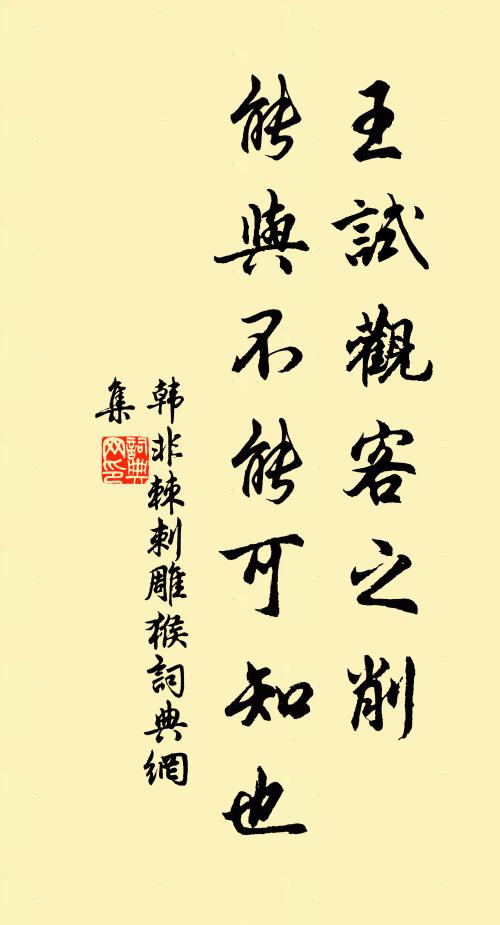 王試觀客之削
能與不能可知也
韩非棘刺雕猴詞典網
集
詞典网印